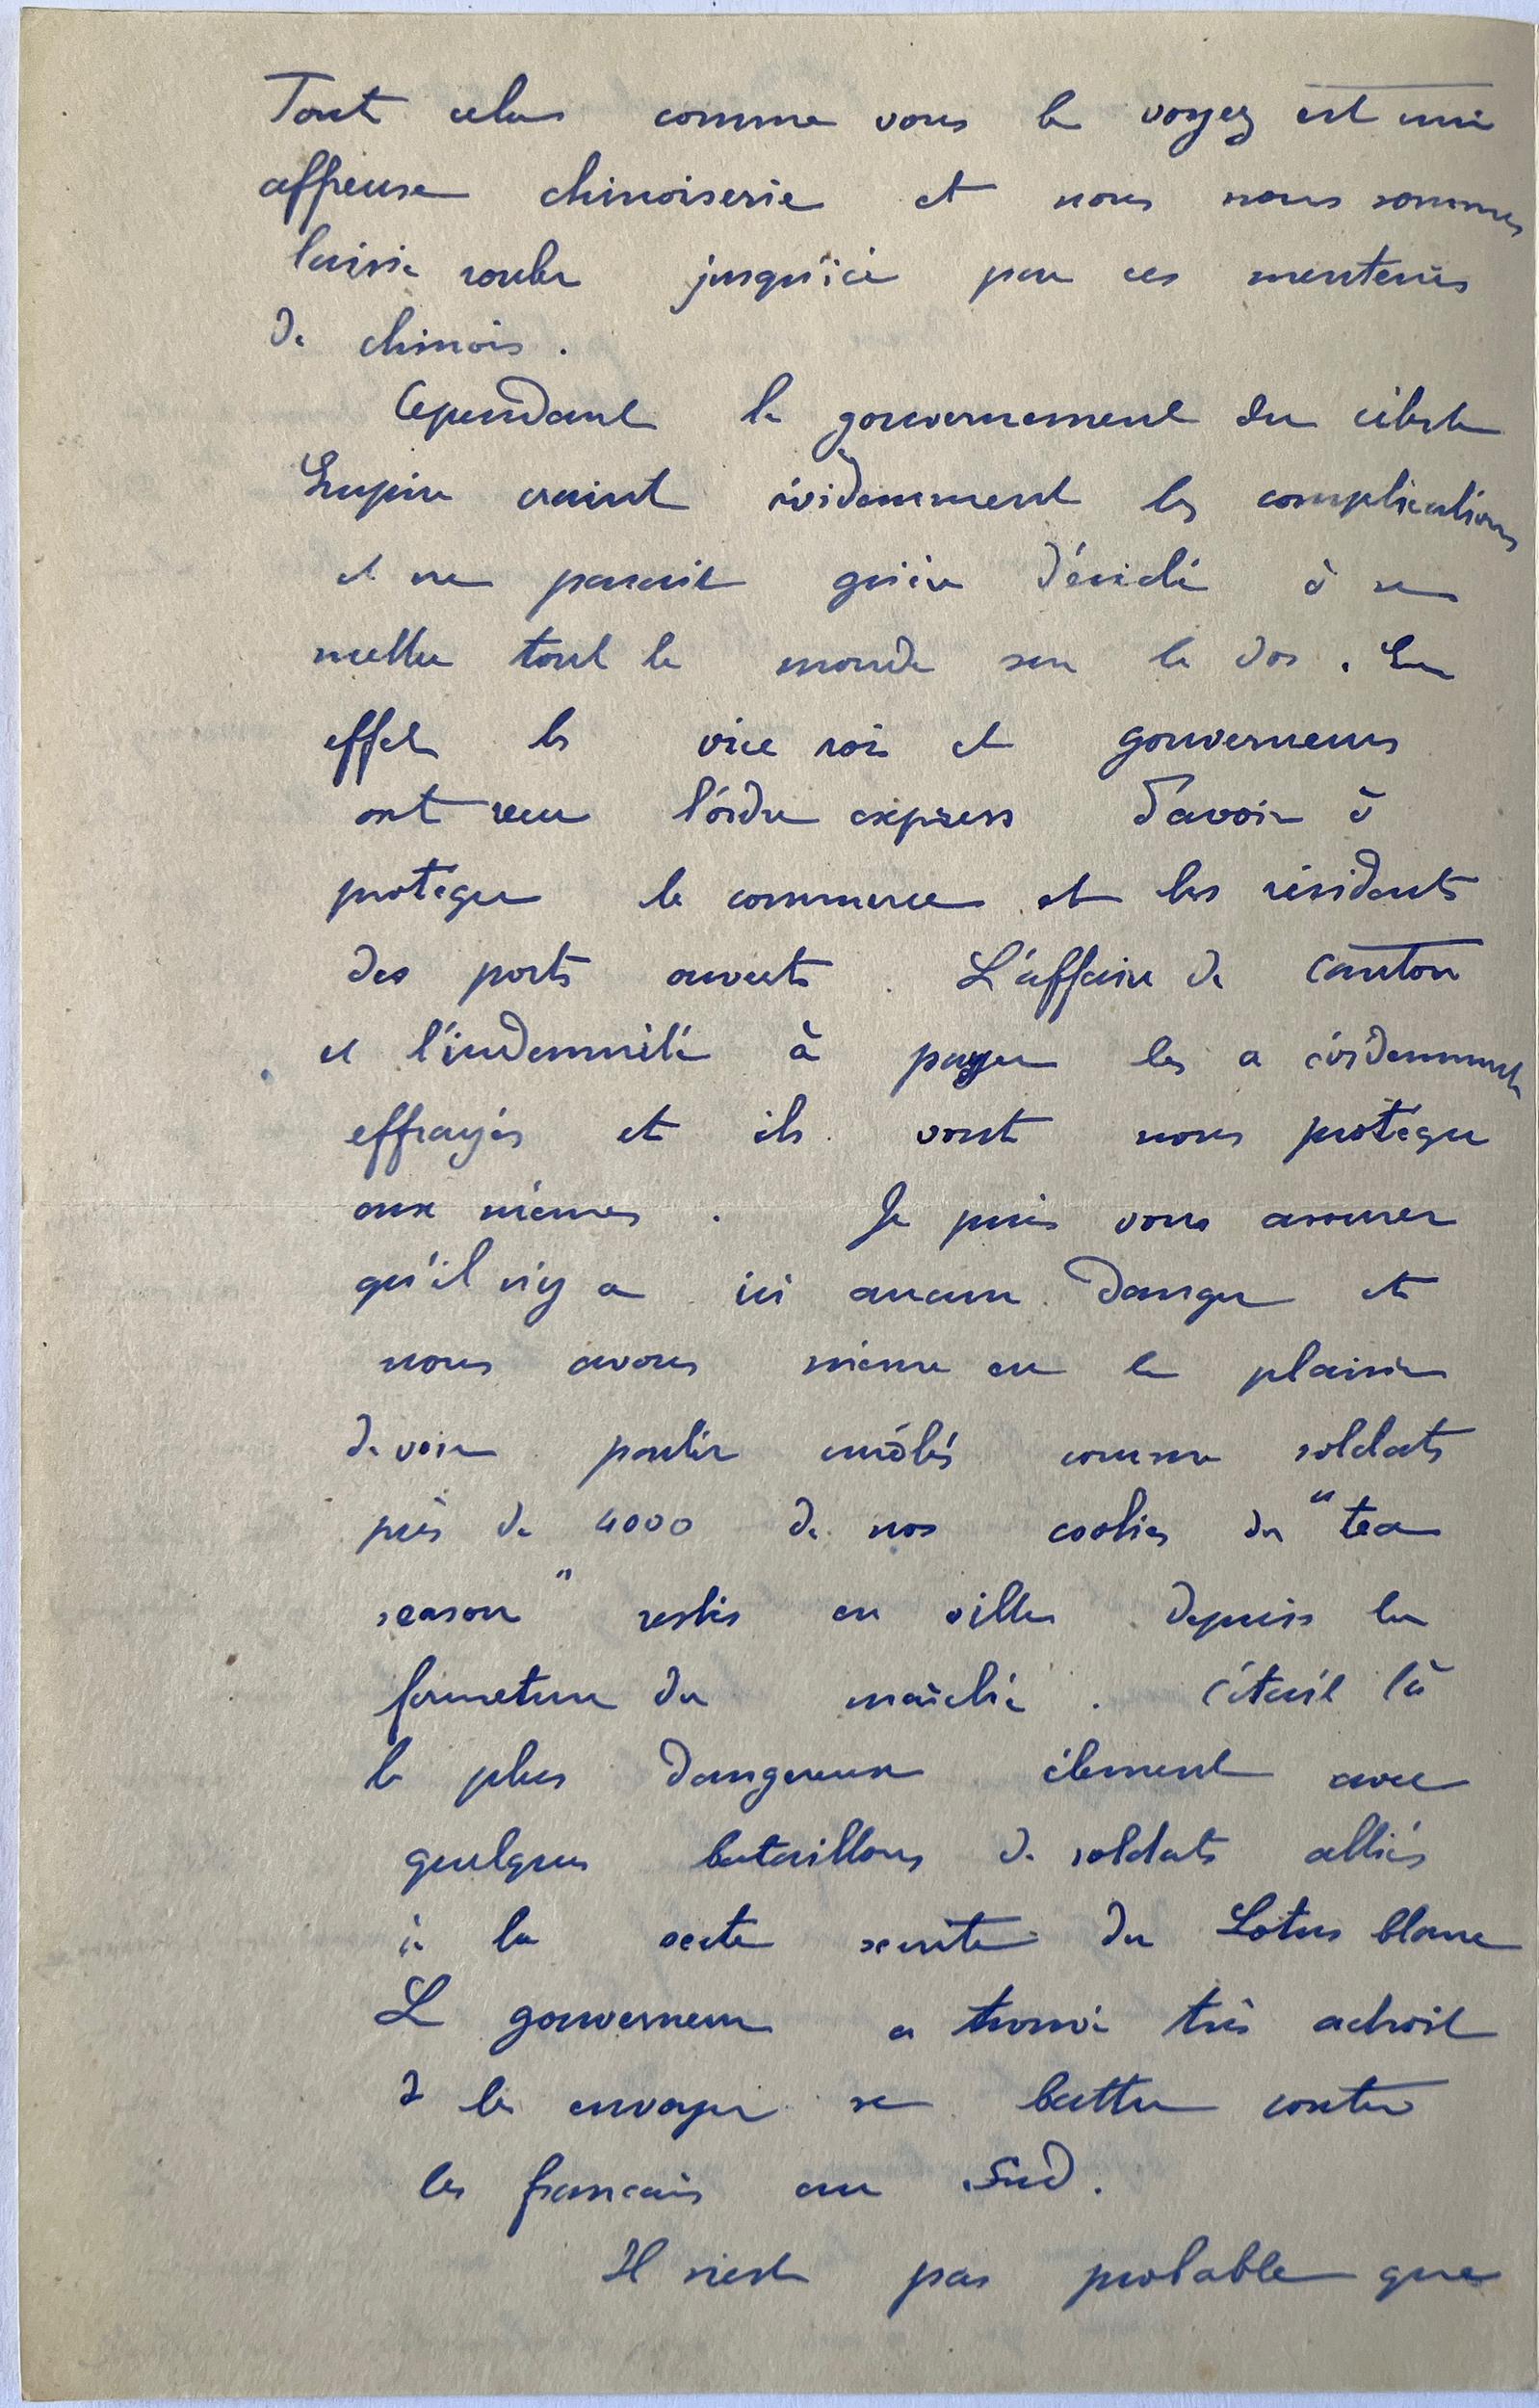 Tout cela comme vous le voyez est une
affreuse chinoiserie et nous nous sommes
laissé rouler jusqu'ici par ces menteurs
de chinois.
Cependant le gouvernement du céleste
Empire craint évidemment les complications
et ne parait guère décidé à se
mettre tout le monde sur le dos. En
effet les vice rois et gouverneurs
ont recu l'ordre express d'avoir à
protéger le commerce et les résidents
des ports ouverts. L'affaire de Canton
et l'indemnité à payer les a évidemment
effrayés et ils vont nous protéger
eux mêmes. Je puis vous assurer
qu'il n'y a ici aucun danger et
nous avons même eu le plaisir
de voir partir enrôlés comme soldats
près de 4000 de nos coolies du "tea
season" restés en ville depuis la
fermeture du marché. C'était là
le plus dangereux élement avec
quelques bataillons de soldats alliés
à la secte secrète du Lotus blanc
Le gouverneur a trouvé très adroit
de les envoyer se battre contre
les francais au Sud.
Il n'est pas probable que